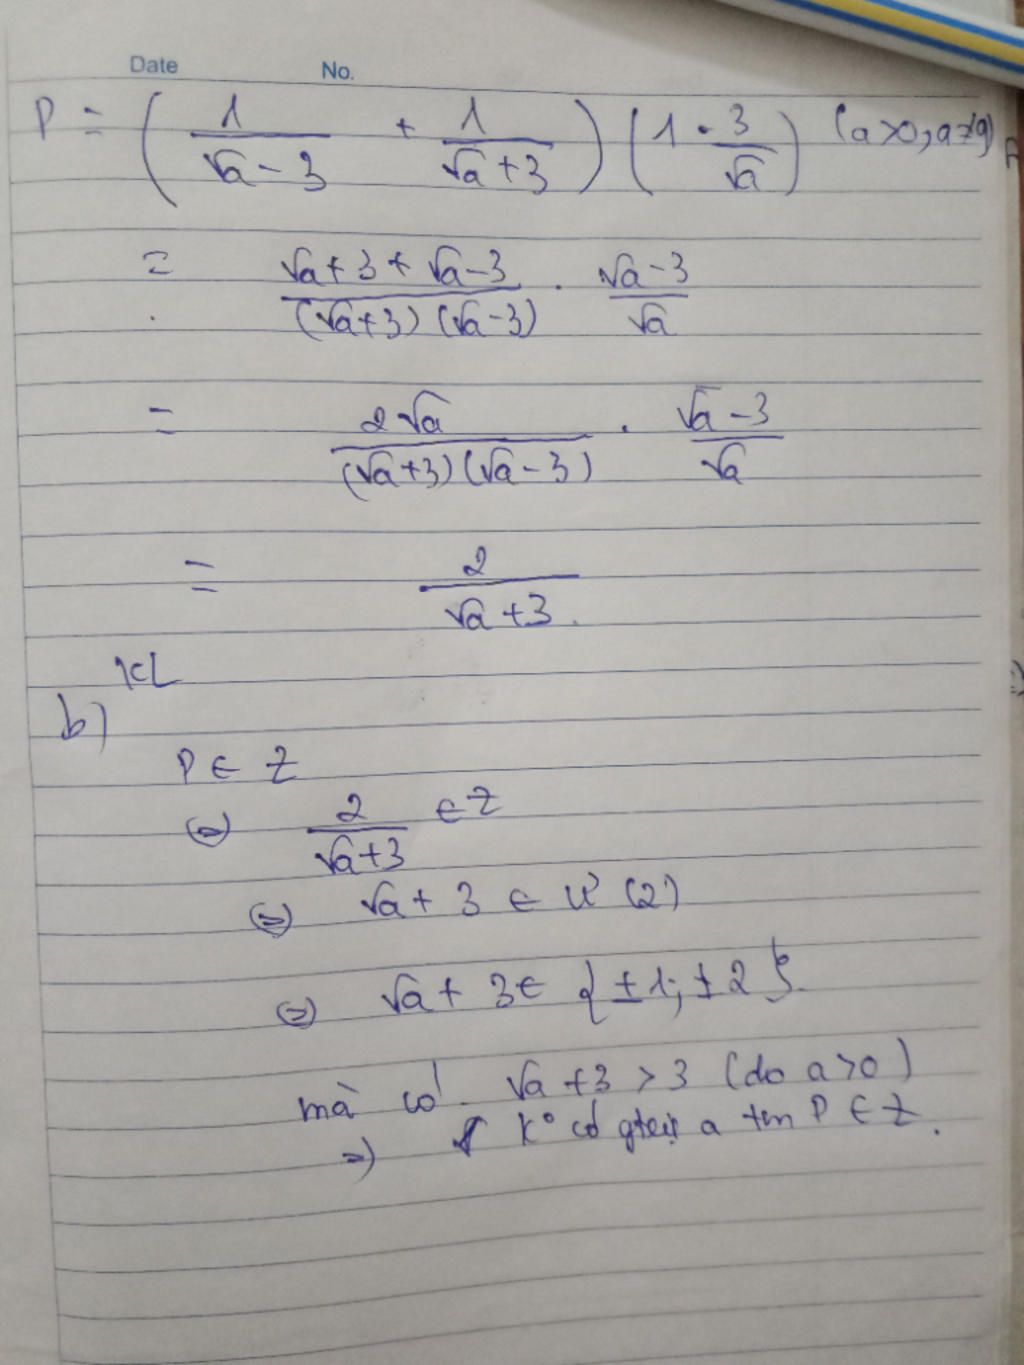 Date No.
P = ( 1/(√a - 3) + 1/(√a + 3) ) ( 1 - 3/√a ) (a>0, a≠9)
= (√a + 3 + √a - 3)/((√a+3)(√a-3)) . (√a - 3)/√a
= 2√a/((√a+3)(√a-3)) . (√a - 3)/√a
= 2/(√a + 3).
KL
b)
P ∈ Z
⇔ 2/(√a+3) ∈ Z
⇔ √a + 3 ∈ Ư(2)
⇔ √a + 3 ∈ {±1; ±2}.
mà có √a + 3 > 3 (do a>0)
=> K° có gtrị a tm P ∈ Z.